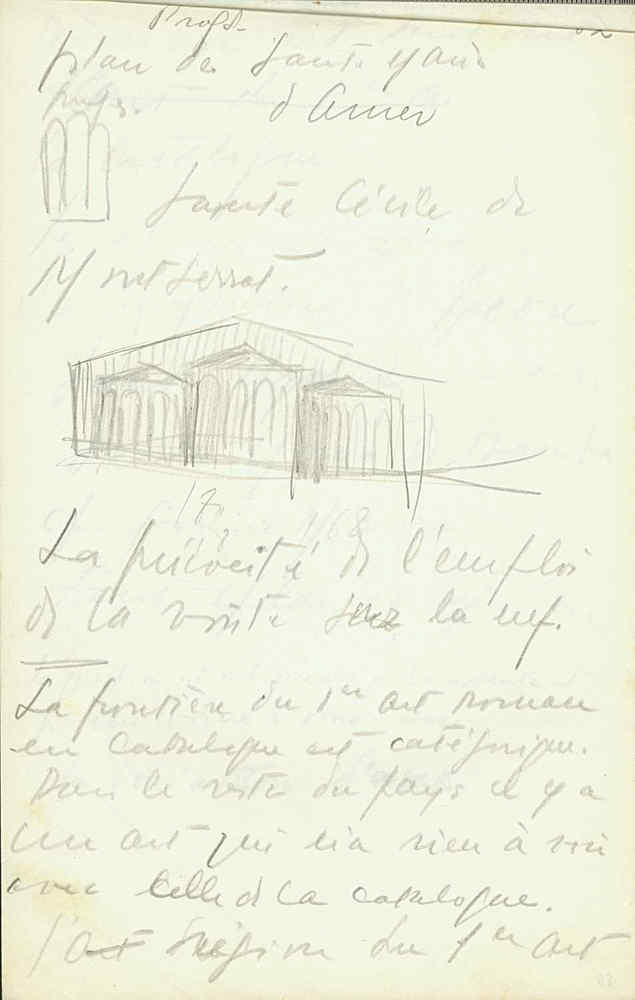 Prof.
plan de Sante Maria
d'Amer
Sainte Cécile de
Montserrat.
La précocité de l'emploi
de la voûte sur la nef.
La frontière du 1er art roman
en Catalogne est catégorique.
Dans le reste du pays il y a
un art qui n'a rien à voir
avec celle de la catalogne.
du 1er art